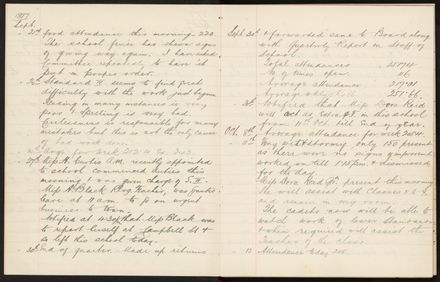 1907
Sept.
21st Good attendance this morning 220.
The school fence has shown signs
of giving way again. I have asked
Committee repeatedly to have it
put in proper order.
Standard V seems to find great
difficulty with the work just begun
Reading in many instances is very
poor & spelling is very bad.
Carelessness is responsible for many
mistakes but this is not the only cause
of bad work done.
Average for week
Miss A. Curtis A.M. recently appointed
to school commenced duties this
morning & was given charge of S. II.
Miss A. Black Prob. Teacher, was granted
leave at 11 a.m. to go on urgent
business to town.
Notified at 12.30 that Miss Black was
to report herself at Campbell St &
so left this school today.
30th End of quarter. Made up returns
Sept 30th & forwarded same to Board along
with Quarterly Report on Staff of
School.
Total attendances
No. of times open
Average attendance
30th Notified that Miss Dora Reid
will act as in this school
till end of year.
Oct. Average attendance for week
Very wet & stormy, only 155 present
As there were no signs of improvement
worked on till 1.15 p.m. & dismissed
for the day.
Miss Dora Reid present this morning
She will assist with Classes
and remain in my room.
The cadets now will be able to
watch work of lower Standards
& when required will assist the
teacher of the class.
Attendance today